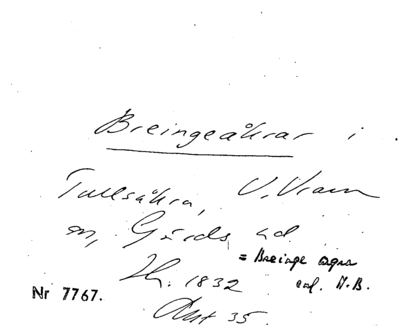 Breingeåkrar i
Tullsåkra, V. Vram
sn, Gärds hd
= Breinge agra
Lh. 1832 enl. M.B.
Nr 7767.
Akt 35